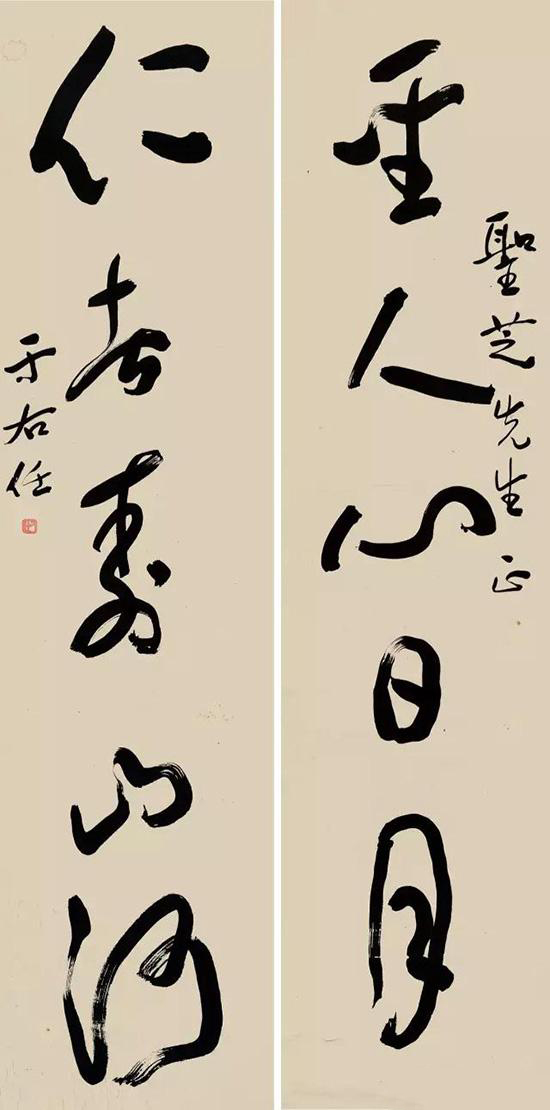 聖芝先生正
聖人心日月
仁者壽山河
于右任